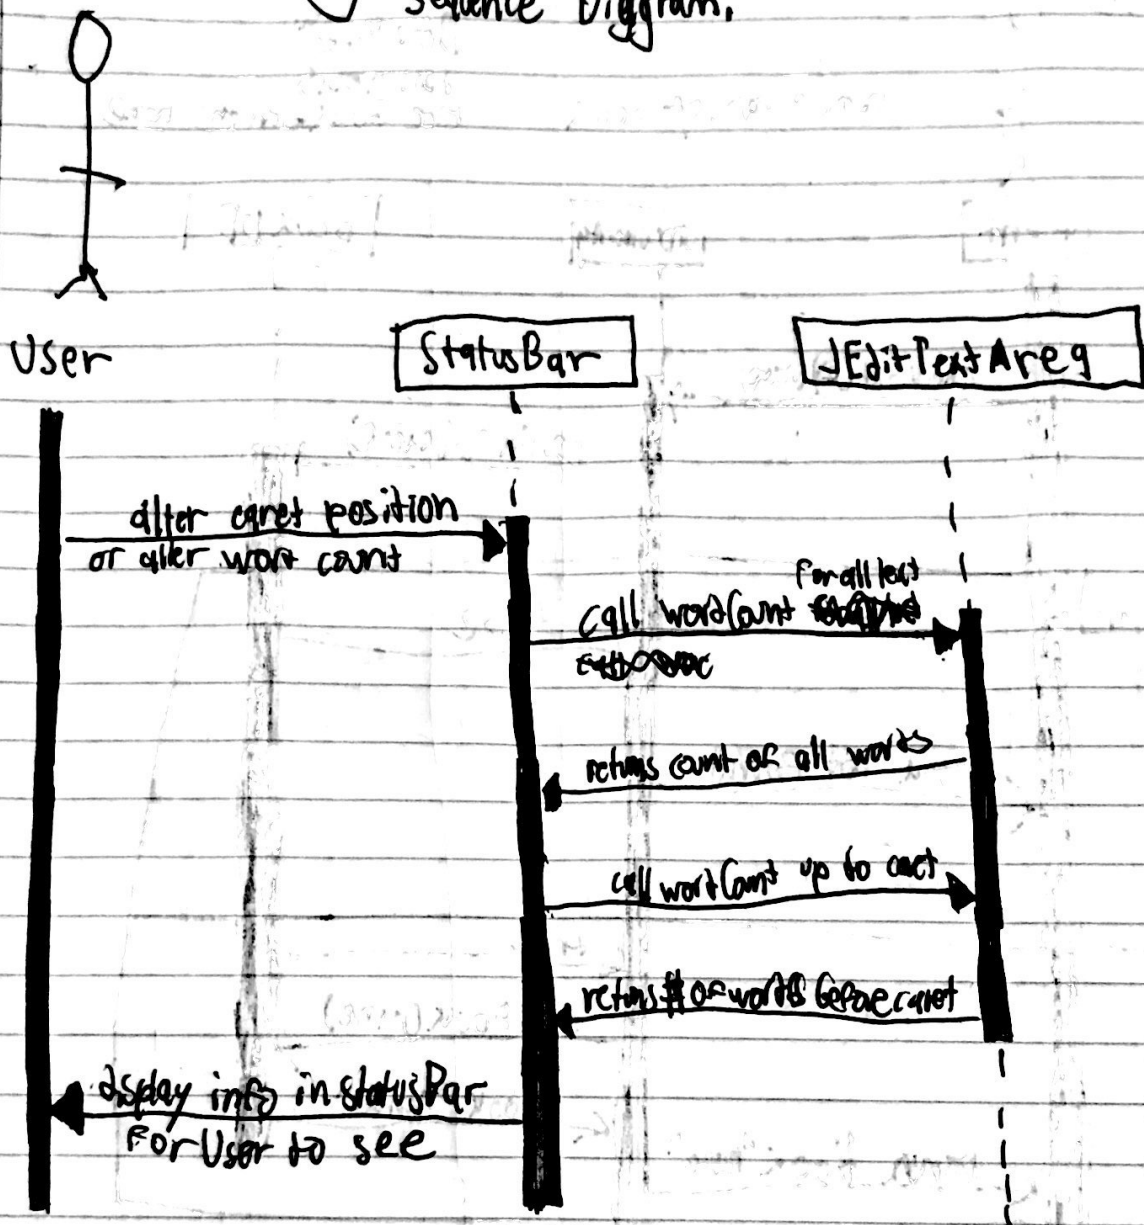 Sequence Diagram.
User
StatusBar
JEditTextArea
alter caret position
or alter word count
for all text
call wordCount
returns count of all words
call wordCount up to caret
returns # of words before caret
display info in statusBar
For User to see